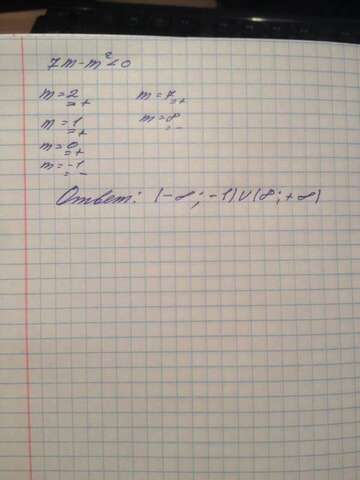 7m-m²<0
m=2 =+ m=7 =+
m=1 =+ m=8 =-
m=0 =+
m=-1 =-
Ответ: (-∞;-1)∪(8;+∞)